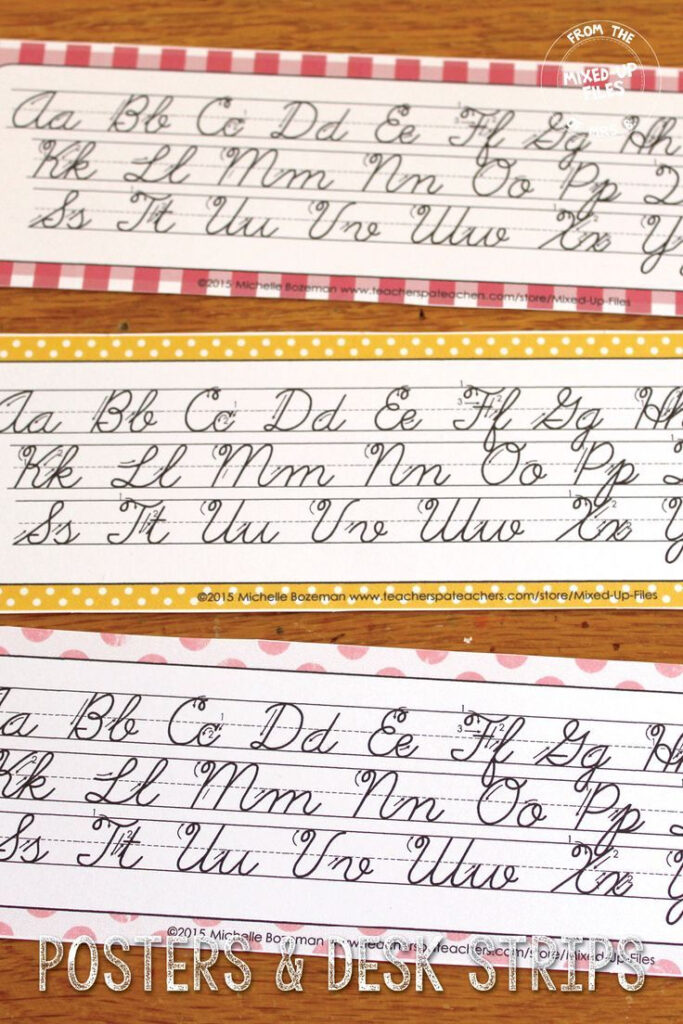 FROM THE
MIXED-UP
FILES
Aa Bb Cc Dd Ee Ff Gg Hh
Kk Ll Mm Nn Oo Pp Q
Ss Tt Uu Vv Ww Xx Yy
©2015 Michelle Bozeman www.teacherspateachers.com/store/Mixed-Up-Files
Aa Bb Cc Dd Ee Ff Gg Hh
Kk Ll Mm Nn Oo Pp
Ss Tt Uu Vv Ww Xx Y
©2015 Michelle Bozeman www.teacherspateachers.com/store/Mixed-Up-Files
a Bb Cc Dd Ee Ff Gg H
Kk Ll Mm Nn Oo Pp
Ss Tt Uu Vv Ww Xx Y
©2015 Michelle Bozeman www.teacherspateachers.com/store/Mixed-Up-Files
POSTERS & DESK STRIPS